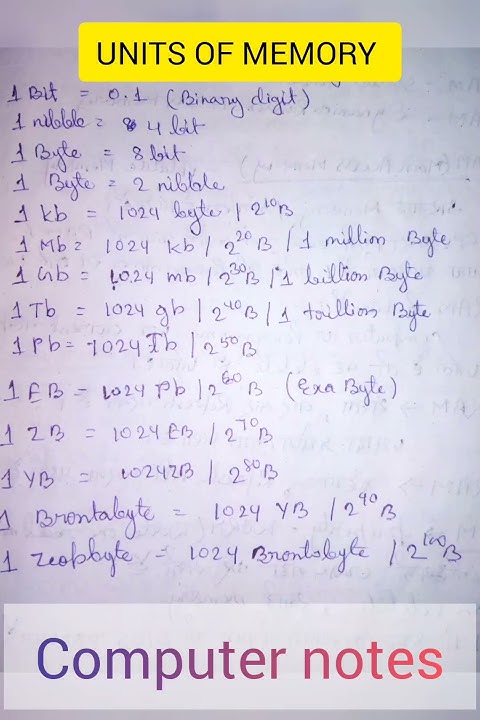 UNITS OF MEMORY
1 Bit = 0.1 (Binary digit)
1 nibble = 4 bit
1 Byte = 8 bit
1 Byte = 2 nibble
1 kb = 1024 byte / 2¹⁰B
1 Mb = 1024 kb / 2²⁰B / 1 million Byte
1 Gb = 1024 mb / 2³⁰B / 1 billion Byte
1 Tb = 1024 gb / 2⁴⁰B / 1 trillion Byte
1 Pb = 1024 Tb / 2⁵⁰B
1 EB = 1024 Pb / 2⁶⁰B (Exa Byte)
1 ZB = 1024 EB / 2⁷⁰B
1 YB = 1024ZB / 2⁸⁰B
1 Brontabyte = 1024 YB / 2⁹⁰B
1 Zeopbyte = 1024 Brontobyte / 2¹⁰⁰B
Computer notes